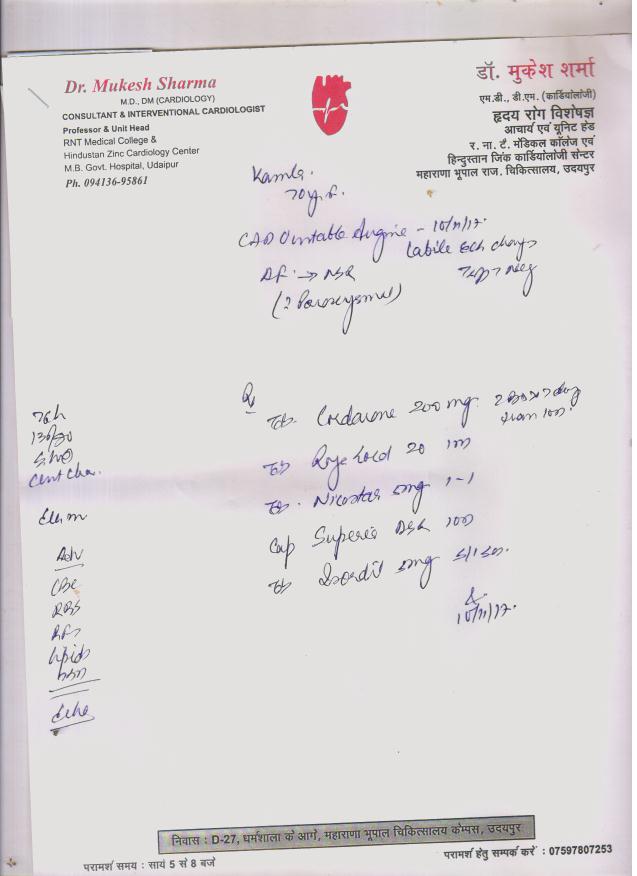 Dr. Mukesh Sharma
M.D., DM (CARDIOLOGY)
CONSULTANT & INTERVENTIONAL CARDIOLOGIST
Professor & Unit Head
RNT Medical College &
Hindustan Zinc Cardiology Center
M.B. Govt. Hospital, Udaipur
Ph. 094136-95861
डॉ. मुकेश शर्मा
एम.डी., डी.एम. (कार्डियोलॉजी)
हृदय रोग विशेषज्ञ
आचार्य एवं यूनिट हेड
र. ना. टै. मेडिकल कॉलेज एवं
हिन्दुस्तान जिंक कार्डियोलॉजी सेन्टर
महाराणा भूपाल राज. चिकित्सालय, उदयपुर
Kamla.
70y. F.
CAD Unstable Angina - 10/11/17.
Labile ECG changes
AF. → NSR
(? Paroxysmal)
Rx
Tab. Cordarone 200 mg
Tab 20 1OD
Tab. 5mg 1-1
Cap DSR 1OD
Tab Isordil 5mg S/L SOS.
10/11/17.
130/80
Adv
CBC
RBS
RFT
Lipid
Echo
निवास : D-27, धर्मशाला के आगे, महाराणा भूपाल चिकित्सालय केम्पस, उदयपुर
परामर्श समय : सायं 5 से 8 बजे
परामर्श हेतु सम्पर्क करें : 07597807253